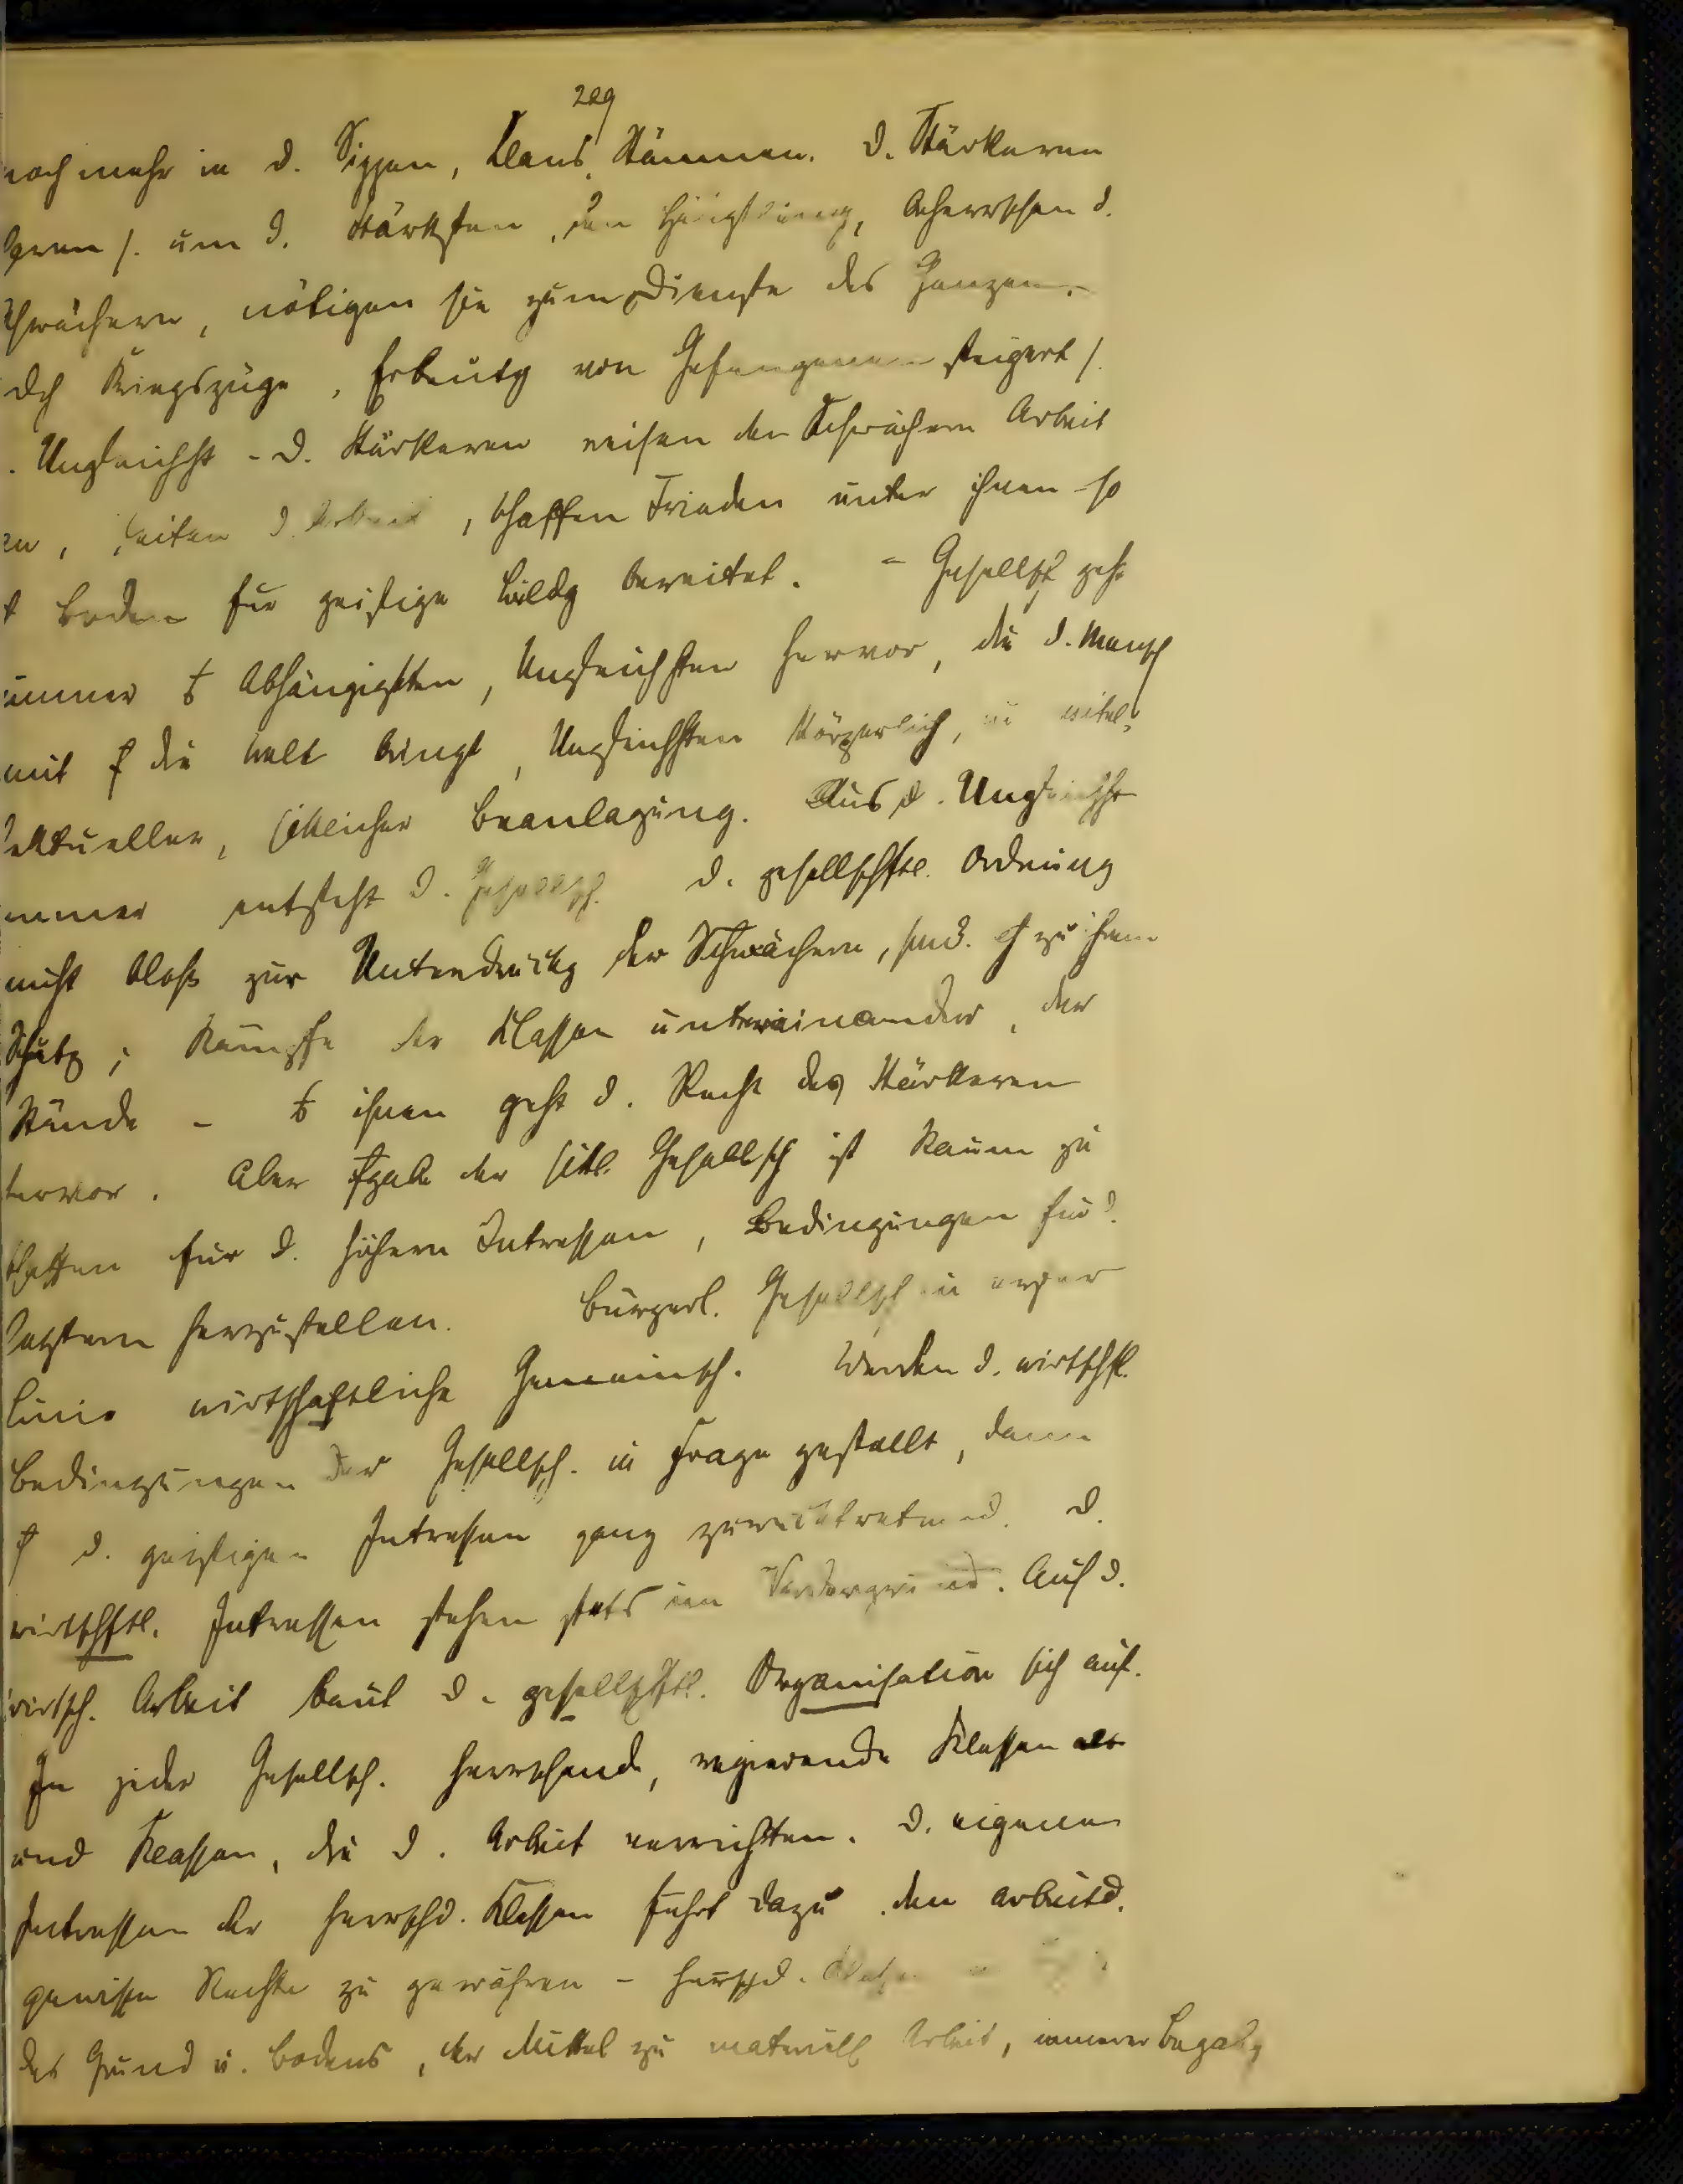 209
noch mehr in d. Sippen, Clans, Stämmen. D. Stärkeren
um d. Stärksten, den Häuptling, beherrschen d.
Schwächern, nötigen sie zum Dienste des Ganzen.
dch Kriegszüge, Erbeutg von Gefangenen steigert s.
. Ungleichht - D. Stärkeren weisen den Schwächern Arbeit
, leiten d. Arbeit, schaffen Frieden unter ihnen - so
Boden für geistige Bildg bereitet. - Gesellsch geht
immer Abhängigktten, Ungleichhten hervor, die d. Mensch
mit die Welt bringt, Ungleichhten körperlich, in intel-
lektueller, sittlicher Beanlagung. Aus d. Ungleichht
immer entsteht d. Gesellsch. D. gesellschftl. Ordnung
nicht bloß zur Unterdrückg der Schwächern, sond. zu ihrem
Schutz; Kämpfe der Klassen untereinander, der
Stände - ihnen geht d. Recht des Stärkeren
hervor. Aber der sittl. Gesellsch ist Raum zu
schaffen für d. höhern Intressen, Bedingungen für d.
letztern herzustellen. Bürgerl. Gesellsch in erster
Linie wirtschaftliche Gemeinsch. Werden d. wirtschftl.
Bedingungen der Gesellsch. in Frage gestellt, dann
d. geistigen Intressen ganz zurücktretend. D.
wirtschftl. Intressen stehen stets im Vordergrund. Auf d.
wirtsch. Arbeit baut d. gesellschftl. Organisation sich auf.
In jeder Gesellsch. herrschende, regierende Klassen
und Klassen, die d. Arbeit verrichten. D. eigenen
Intressen der herrschd. Klassen führt dazu den arbeitd.
gewisse Rechte zu gewähren - herrschd. Klassen
des Grund u. Bodens, der Mittel zu materiell Arbeit, innerer Begabg